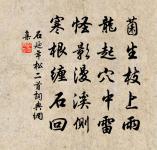 菌生枝上雨
龍起穴中雷
怪影漫溪側
寒根纏石回
石延年松二首詞典網
集